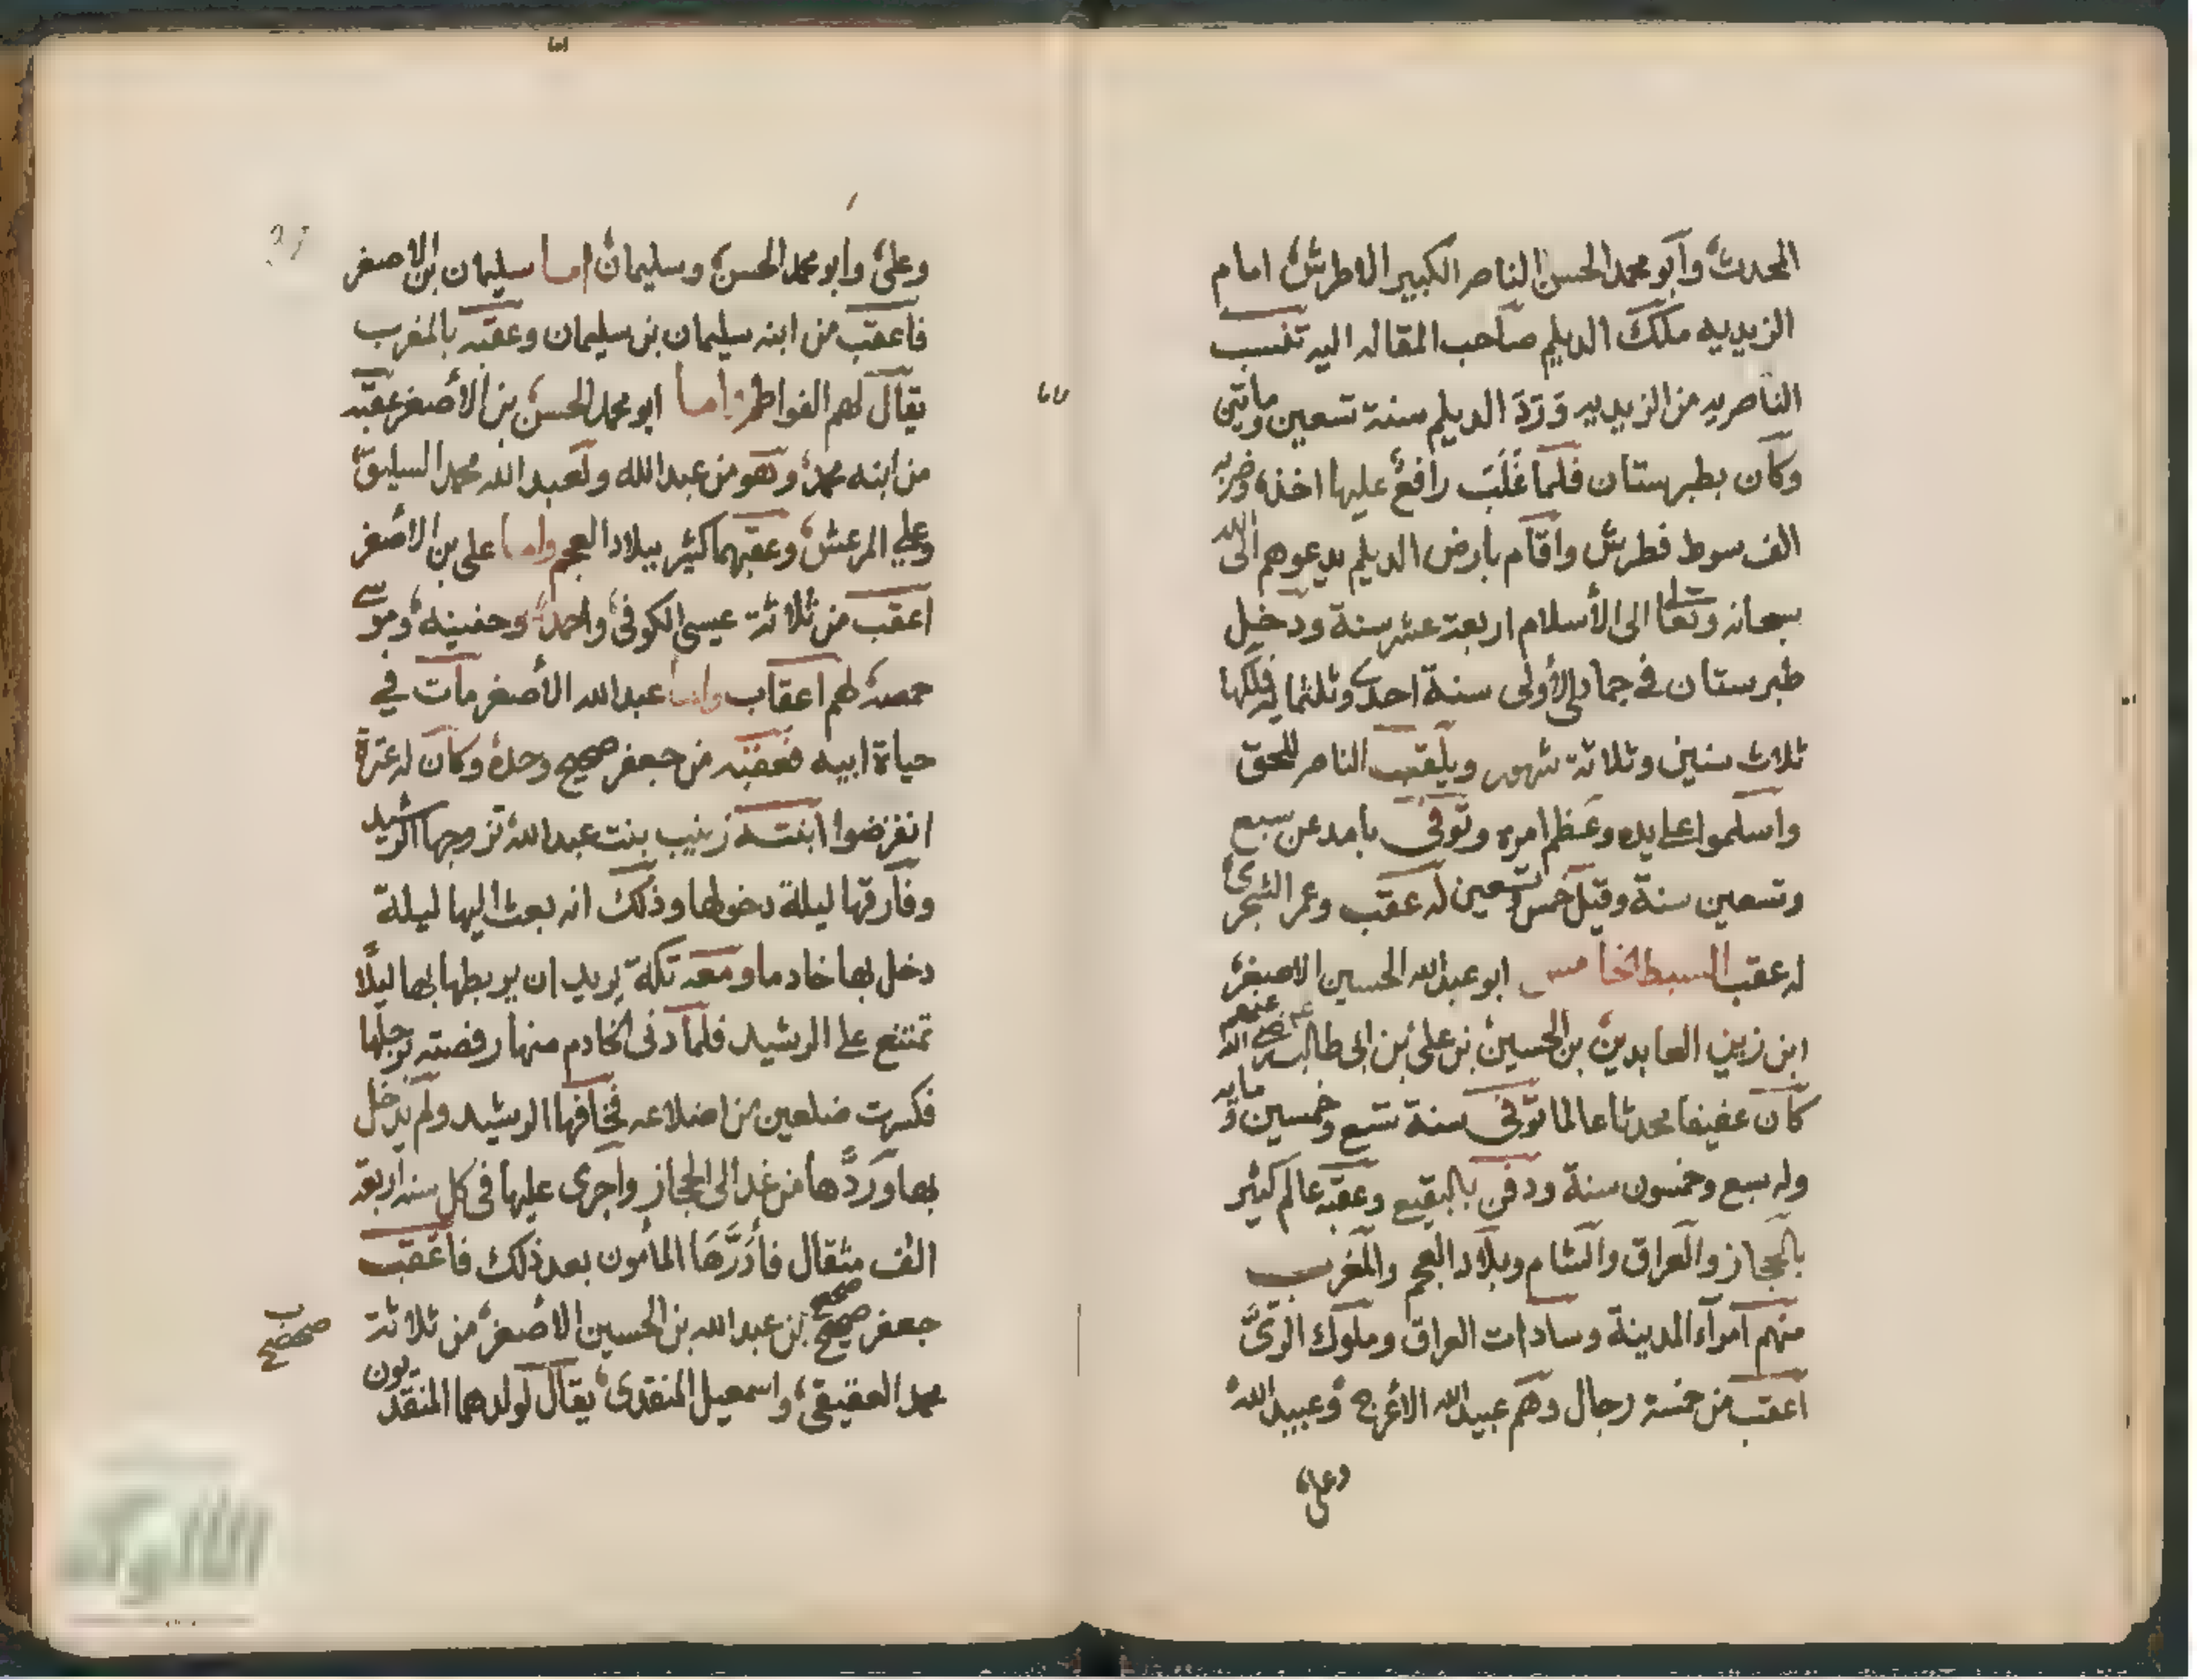 المحدث وابو محمد الحسن الناصر الكبير الاطرش امام
الزيديه ملك الديلم صاحب المقاله اليه تنسب
الناصريه من الزيديه وَرَدَ الديلم سنة تسعين وماتين
وكان بطبرستان فلما غَلَبَ رافع عليها اخذه وضربه
الف سوط فطرش واقام بارض الديلم يدعوهم الى الله
سبحانه وتعالى الى الأسلام اربعة عشر سنة ودخل
طبرستان في جمادي الأولى سنة احدى وثلثمايه فملكها
ثلاث سنين وثلاثة شهور ويلقب الناصر للحق
واسلموا على يده وعظم امره وتوفى بامد عن سبع
وتسعين سنة وقيل خمس وتسعين له عقب وعمر الشجرى
له عقب السبط الخامس ابو عبد الله الحسين الاصغر
ابن زين العابدين بن الحسين بن على بن ابى طالب رضى الله عنهم
كان عفيفا محدثا عالما توفى سنة سبع وخمسين ومايه
وله سبع وخمسون سنة ودفن بالبقيع وعقبه عالم كثير
بالحجاز والعراق والشام وبلاد العجم والمغرب
منهم امرآء المدينة وسادات العراق وملوك الرىّ
اعقب من خمسة رجال وهم عبيد الله الأعرج وعبيد الله
وعلى
وعلى وابو محمد الحسن وسليمان اما سليمان بن الاصغر
فاعقب من ابنه سليمان بن سليمان وعقبه بالمغرب
يقال لهم الفواطم واما ابو محمد الحسن بن الأصغر عقبه
من ابنه محمد وهو من عبد الله ولعبد الله محمد السليق
وعلي المرعش وعقبهما كثير ببلاد العجم واما على بن الأصغر
اعقب من ثلاثة عيسى الكوفى واحمد وحفينه وموسى
حمصه لهم اعقاب واما عبد الله الأصغر مات في
حياة ابيه فعقبه من جعفر صحيح وحده وكان له عترة
انقرضوا ابنته زينب بنت عبد الله تزوجها الرشيد
وفارقها ليلة دخولها وذلك انه بعث اليها ليلة
دخل بها خادما ومعه تكة يريد ان يربطها بها ليلًا
تمتنع على الرشيد فلما دنى الخادم منها رفصته برجلها
فكسرت ضلعين من اضلاعه فخافها الرشيد ولم يدخل
بها وردَّها من غد الى الحجاز واجرى عليها فى كل سنه اربعة
الف مثقال فأدرَّهَا المأمون بعد ذلك فاعقب
جعفر صحيح بن عبد الله بن الحسين الأصغر من ثلاثة
محمد العقيقى واسمعيل المنقدى يقال لولدهما المنقديون
صحصح